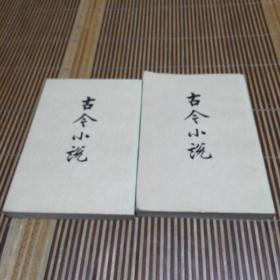 古今小说
古今小说